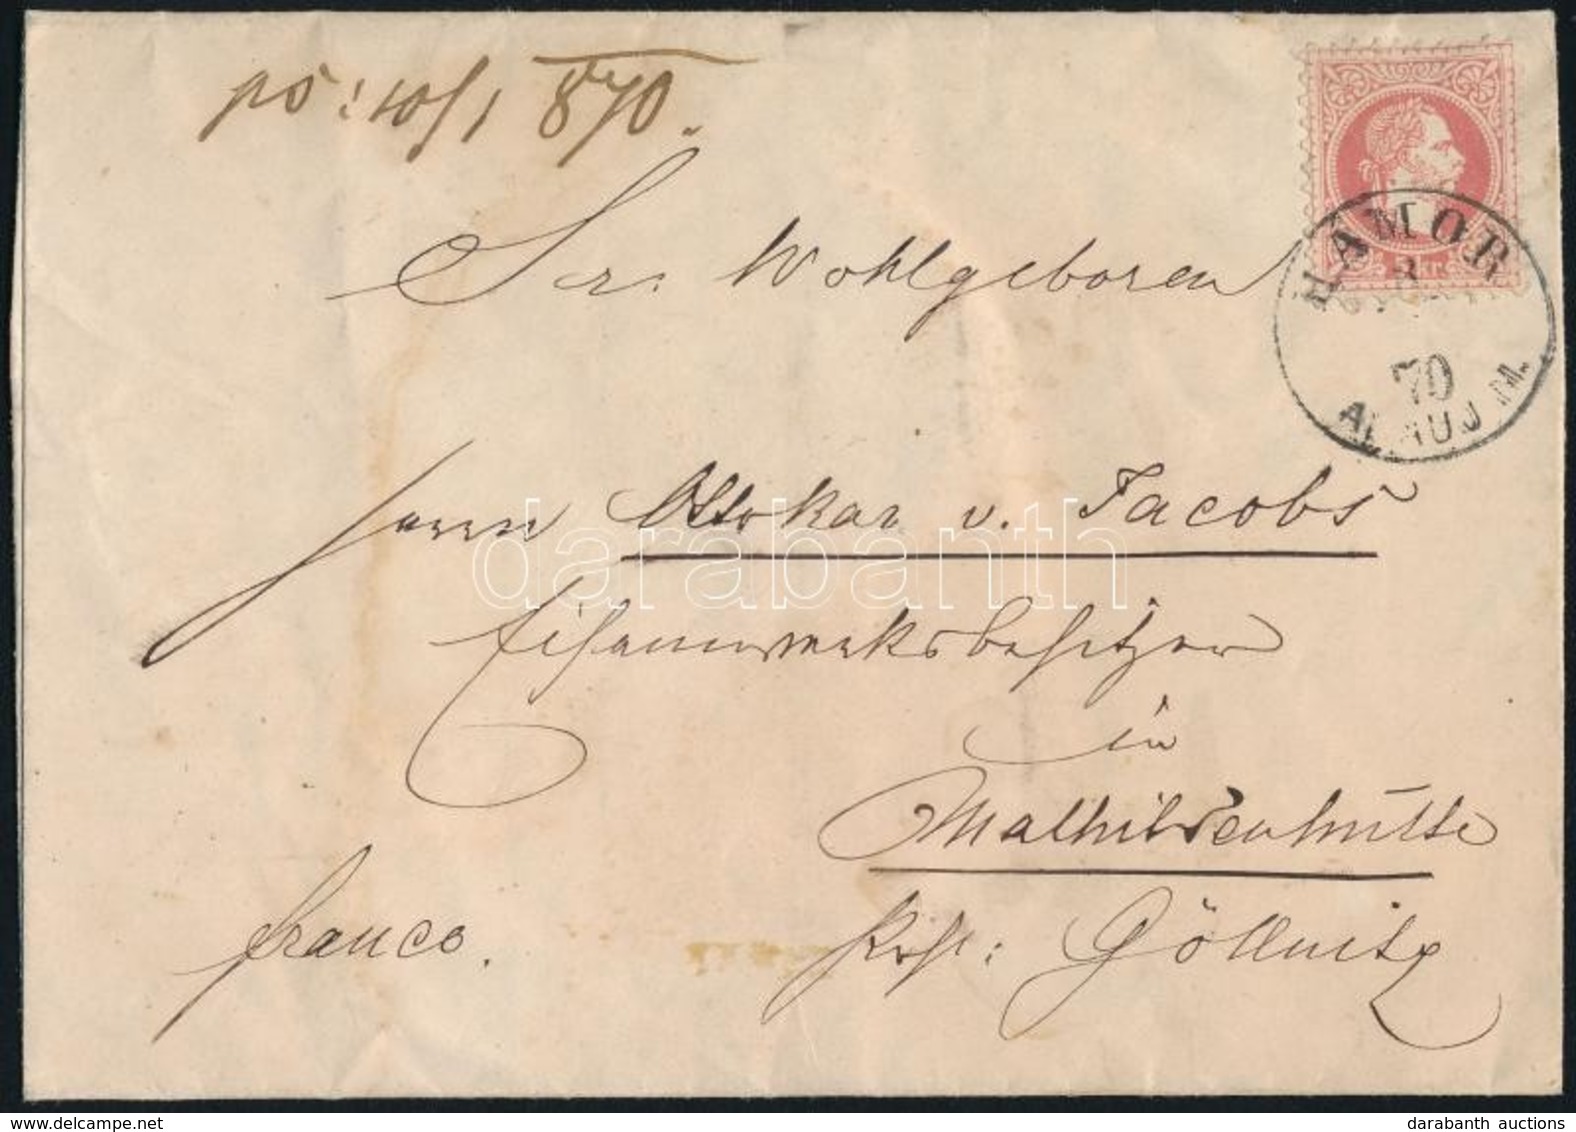 ps: 10/1 870.
Sr. Wohlgeboren
HAMOR
8
70
ABAUJ M.
Herrn Ottokar v. Jacobs
darabanth
Eisenwerksbesitzer
in
Mathildenhütte
franco.
Göllnitz
darabanth auctions